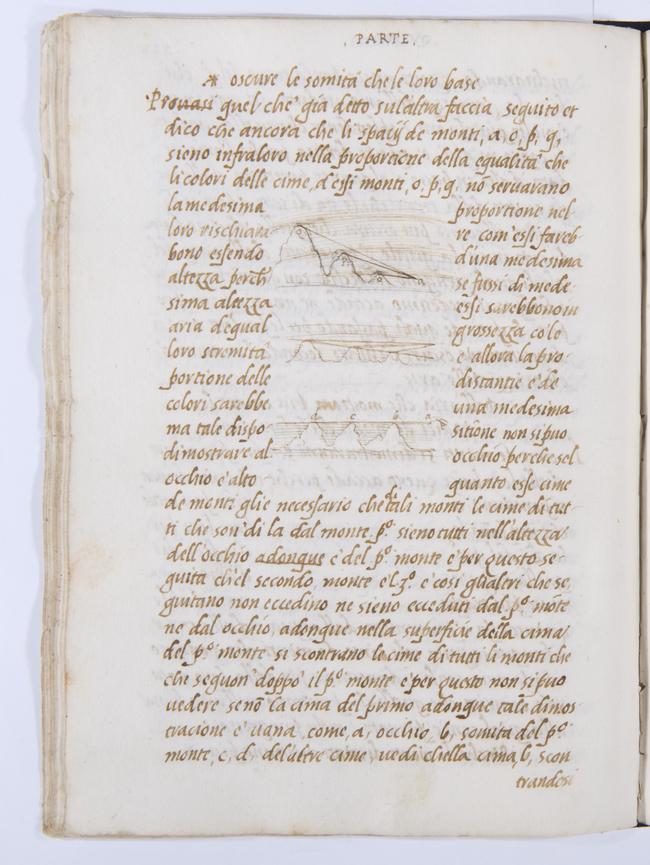 PARTE
* oscure le somita che le loro base
Provasi quel che già detto sulaltra faccia, seguito et
dico che ancora che li spacij de monti, a, o, p, q,
sieno infraloro nella proportione della equalita che
li colori delle cime, d'essi monti, o, p, q, nō servarano
la medesima proportione nel
loro rischiara re com'essi fareb
bono essendo d'una medesima
altezza perch se fussi di mede
sima altezza essi sarebbono in
aria d'egual grossezza co lo
loro stremità e allora la pro
portione delle distantie e de
colori sarebbe una medesima
ma tale dispo sitione non si puo
dimostrare al occhio perche sel
occhio e alto quanto esse cime
de monti glie necessario che tali monti le cime di tut
ti che son di la dal monte p.º sieno tutti nell'altezza
dell'occhio adonque e del p.º monte e per questo se
guita ch'el secondo, monte e'l 3.º e cosi gl'altri che se
guitano non eccedino ne sieno ecceduti dal p.º mōte
ne dal occhio, adonque nella superficie della cima
del p.º monte si scontrano le cime di tutti li monti che
che seguon doppo il p.º monte e per questo non si puo
vedere senō la cima del primo adonque tale dimos
tracione e vana, come, a, occhio, b, somita del p.º
monte, c, d, del'altre cime, vedi ch'ella cima, b, scon
trandosi